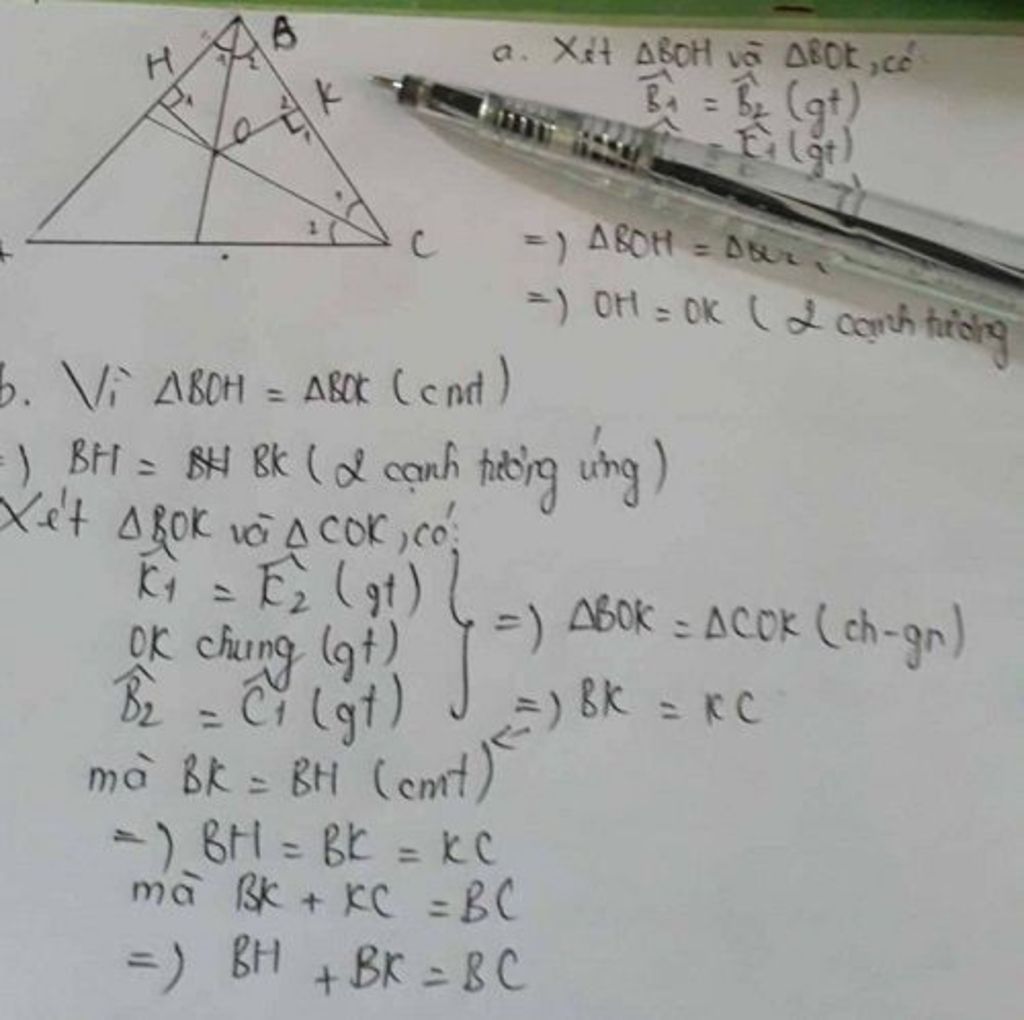 H
B
1
2
K
2
1
1
O
1
2
C
a. Xét ΔBOH và ΔBOK, có
B̂1 = B̂2 (gt)
= K̂1 (gt)
=) ΔBOH =
=) OH = OK ( 2 cạnh tương
b. Vì ΔBOH = ΔBOK (cmt)
=) BH = BH BK ( 2 cạnh tương ứng )
Xét ΔBOK và ΔCOK, có:
K̂1 = K̂2 (gt)
OK chung (gt)
B̂2 = Ĉ1 (gt)
=) ΔBOK = ΔCOK (ch-gn)
=) BK = KC
mà BK = BH (cmt)
=) BH = BK = KC
mà BK + KC = BC
=) BH + BK = BC